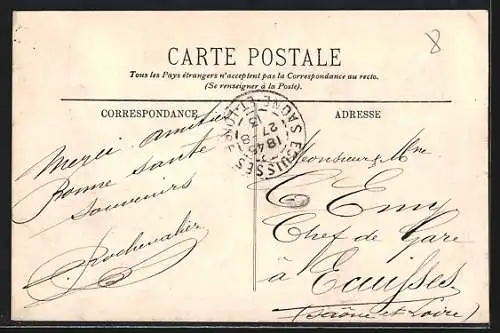 8
CARTE POSTALE
Tous les Pays étrangers n'acceptent pas la Correspondance au recto.
(Se renseigner à la Poste).
CORRESPONDANCE
Merci amitiés
Bonne santé
Souvenirs
Rochevalier
ADRESSE
Monsieur & Mme
Emy
Chef de Gare
à Ecuisses
(Saône et Loire)
ECUISSES
SAONE-ET-LOIRE
18 45
27